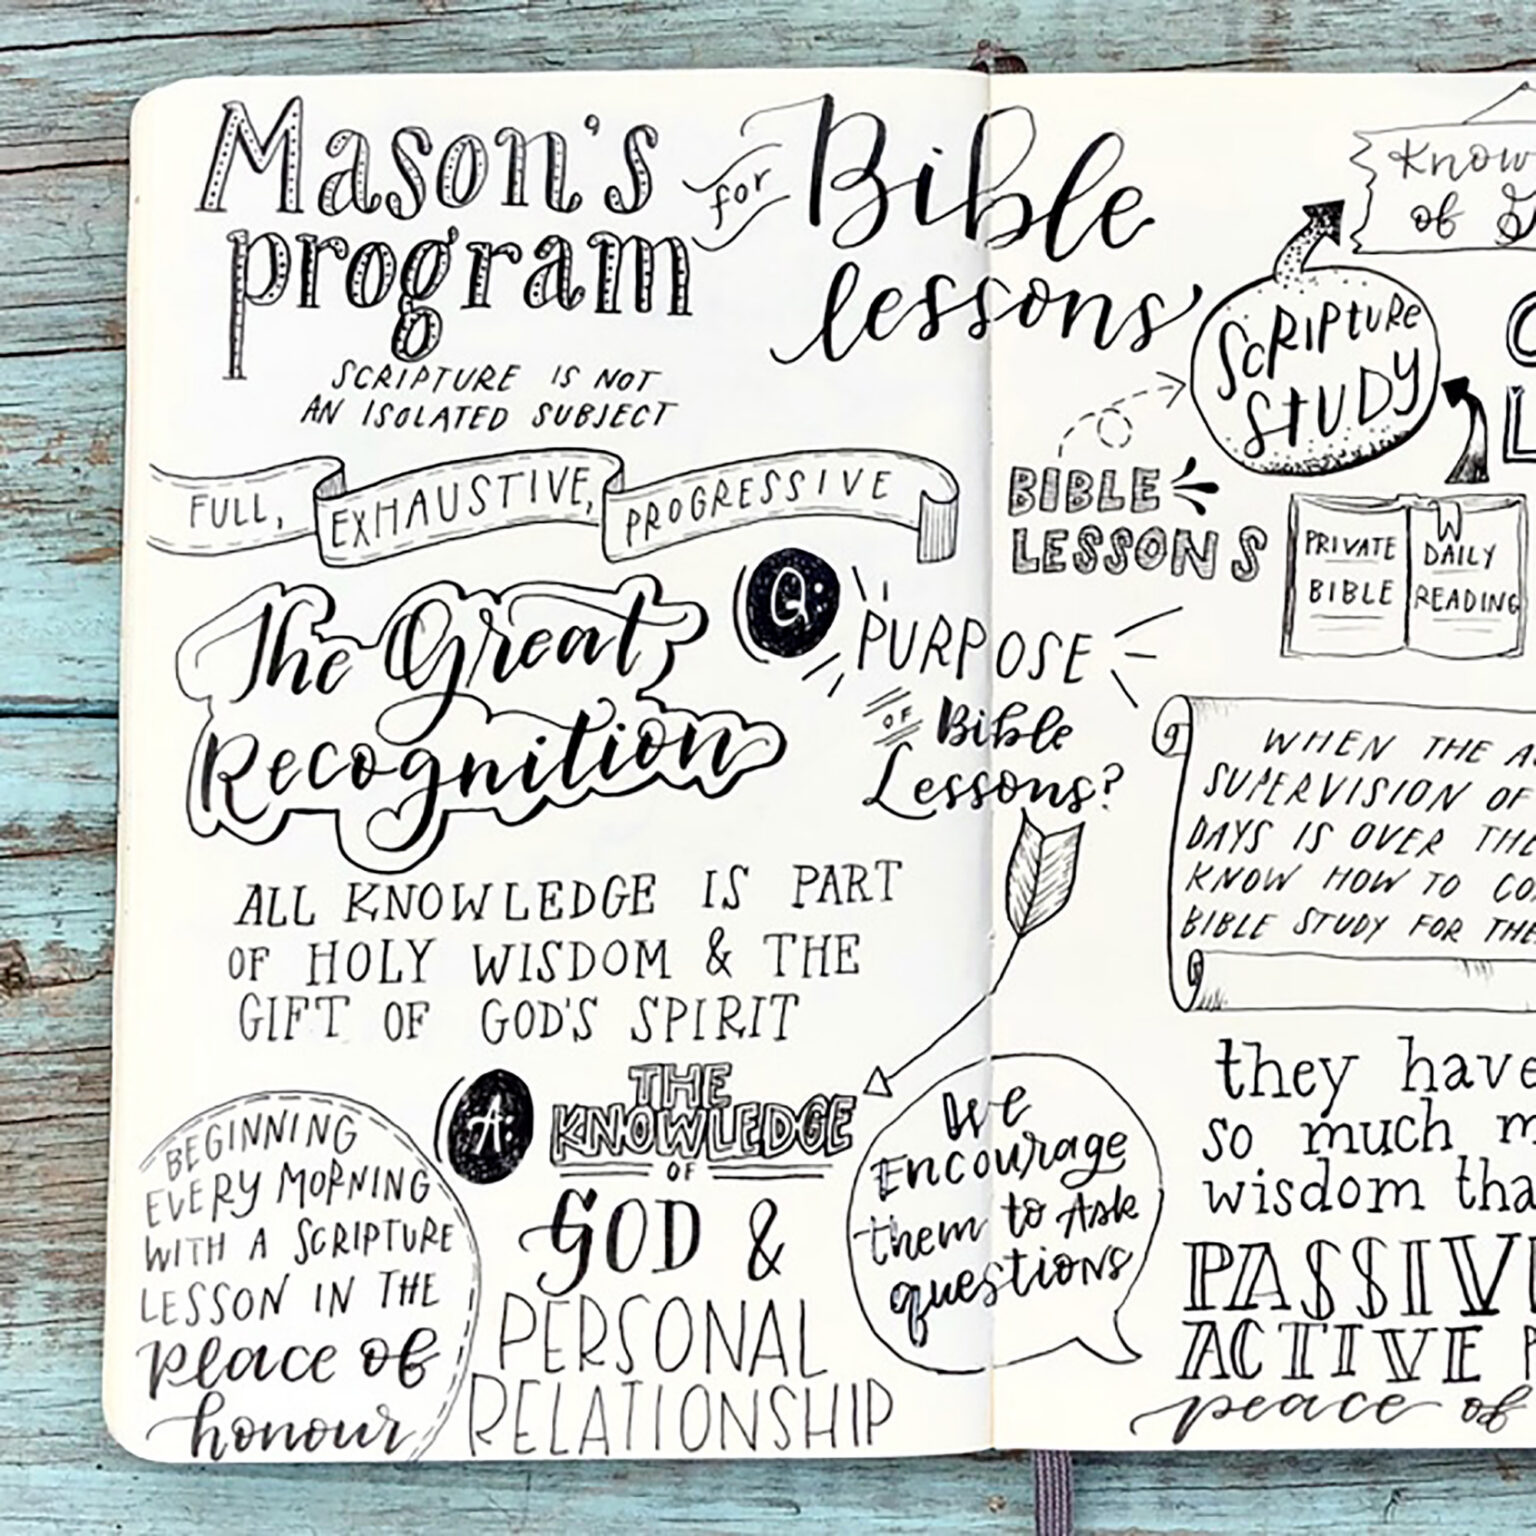 Mason's
program
for
Bible
lessons
SCRIPTURE IS NOT
AN ISOLATED SUBJECT
FULL, EXHAUSTIVE, PROGRESSIVE
The Great
Recognition
ALL KNOWLEDGE IS PART
OF HOLY WISDOM & THE
GIFT OF GOD'S SPIRIT
BEGINNING
EVERY MORNING
WITH A SCRIPTURE
LESSON IN THE
place of
honour
Q:
PURPOSE
OF Bible
Lessons?
A:
THE
KNOWLEDGE
OF
GOD &
PERSONAL
RELATIONSHIP
We
Encourage
them to Ask
questions
of
SCRIPTURE
STUDY
BIBLE
LESSONS
PRIVATE
BIBLE
DAILY
READING
WHEN THE
SUPERVISION OF
DAYS IS OVER
KNOW HOW TO
BIBLE STUDY FOR
they have
so much
wisdom
ACTIVE
peace of